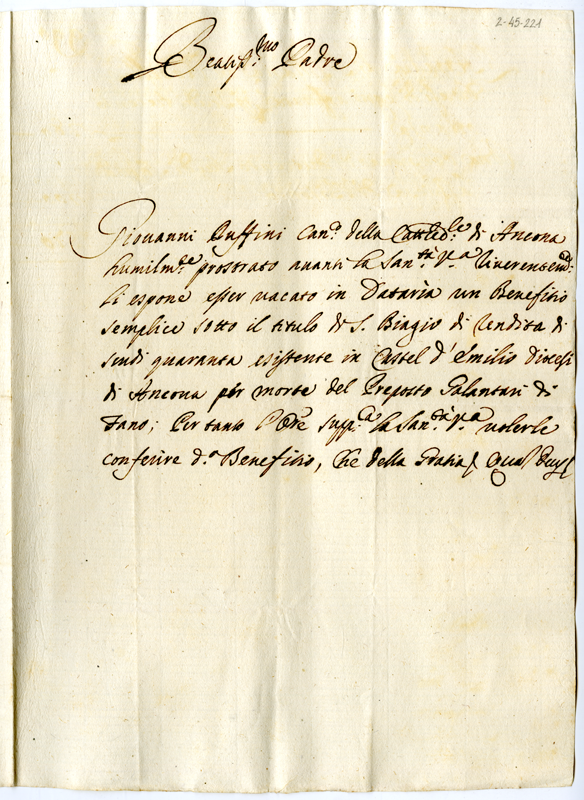 2-45-221
Beatiss.mo Padre
Giovanni Ruffini Can.o della Catted.le di Ancona
humilm.te prostrato avanti la San.tà V.a riverentem.te
li espone esser vacato in Dataria un Benefitio
semplice sotto il titulo di S. Biagio di rendita di
scudi quaranta esistente in Castel d'Emilio Diocesi
di Ancona per morte del Preposto Galantari di
Fano; Per tanto l'Ore supp.ca la San.tà V.a volerle
conferire d.o Benefitio, Che della Gratia